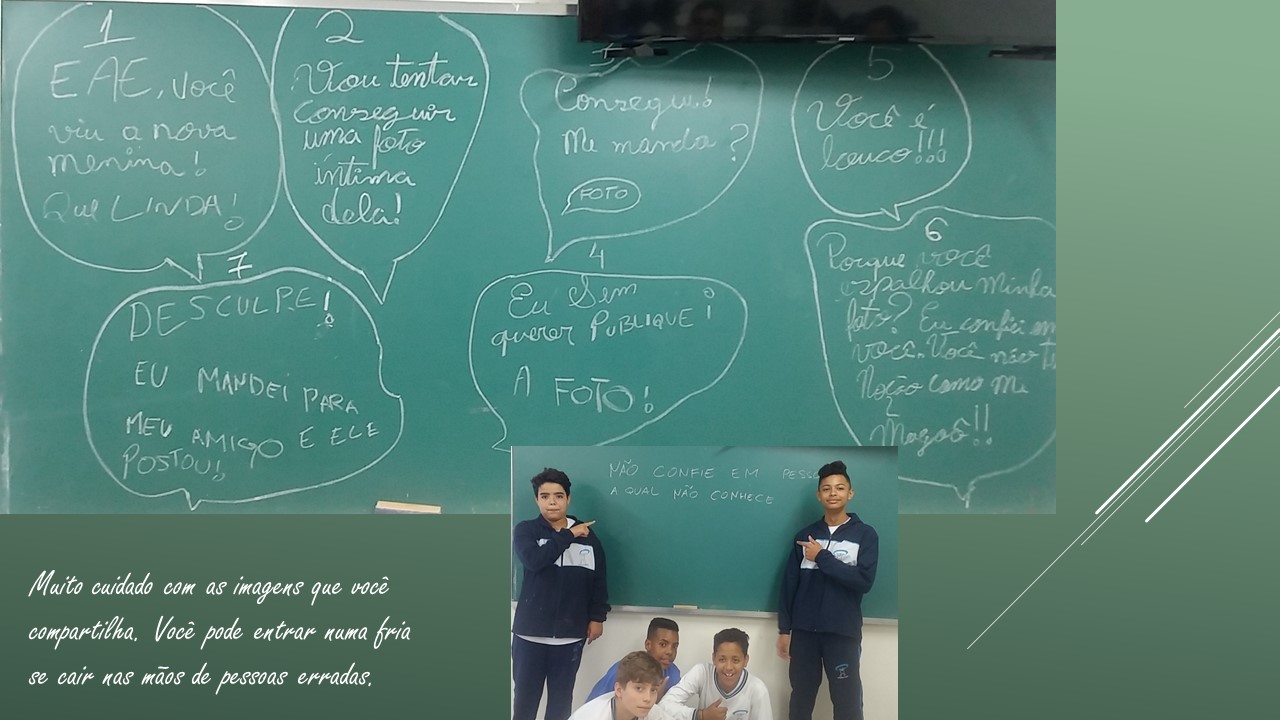 1
EAE, você
viu a nova
menina!
Que LINDA!
2
Vou tentar
conseguir
uma foto
íntima
dela!
Consegui!
Me manda?
FOTO
4
Eu Sem
querer PUBLIQUEI
A FOTO!
5
Você é
louco!!!
6
Porque você
espalhou Minha
foto? Eu confiei em
você. Você não
Noção como me
Magoô!!
7
DESCULPE!
EU MANDEI PARA
MEU AMIGO E ELE
POSTOU!
NÃO CONFIE EM
A QUAL NÃO CONHECE
Muito cuidado com as imagens que você
compartilha. Você pode entrar numa fria
se cair nas mãos de pessoas erradas.